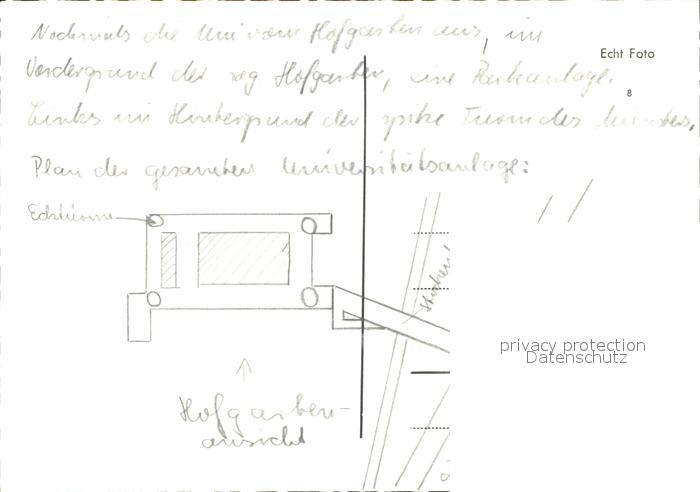 Nochmals die Uni vom Hofgarten aus, im
Echt Foto
Vordergrund der sog Hofgarten, eine Parkanlage.
8
Links im Hintergrund der spitze Turm des Münsters.
Plan der gesamten Universitätsanlage:
Ecktürme
privacy protection
Datenschutz
Hofgarten-
ansicht